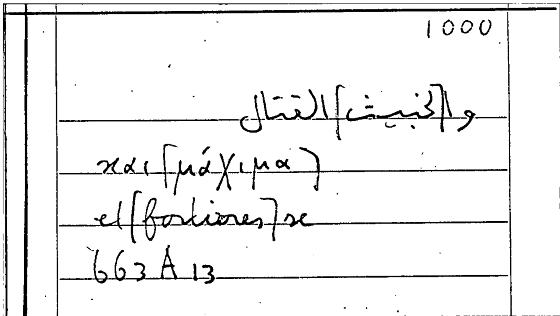 1000
و[الخبيث] القتال
και [μάχιμα]
et [fortiores] se
663 A 13